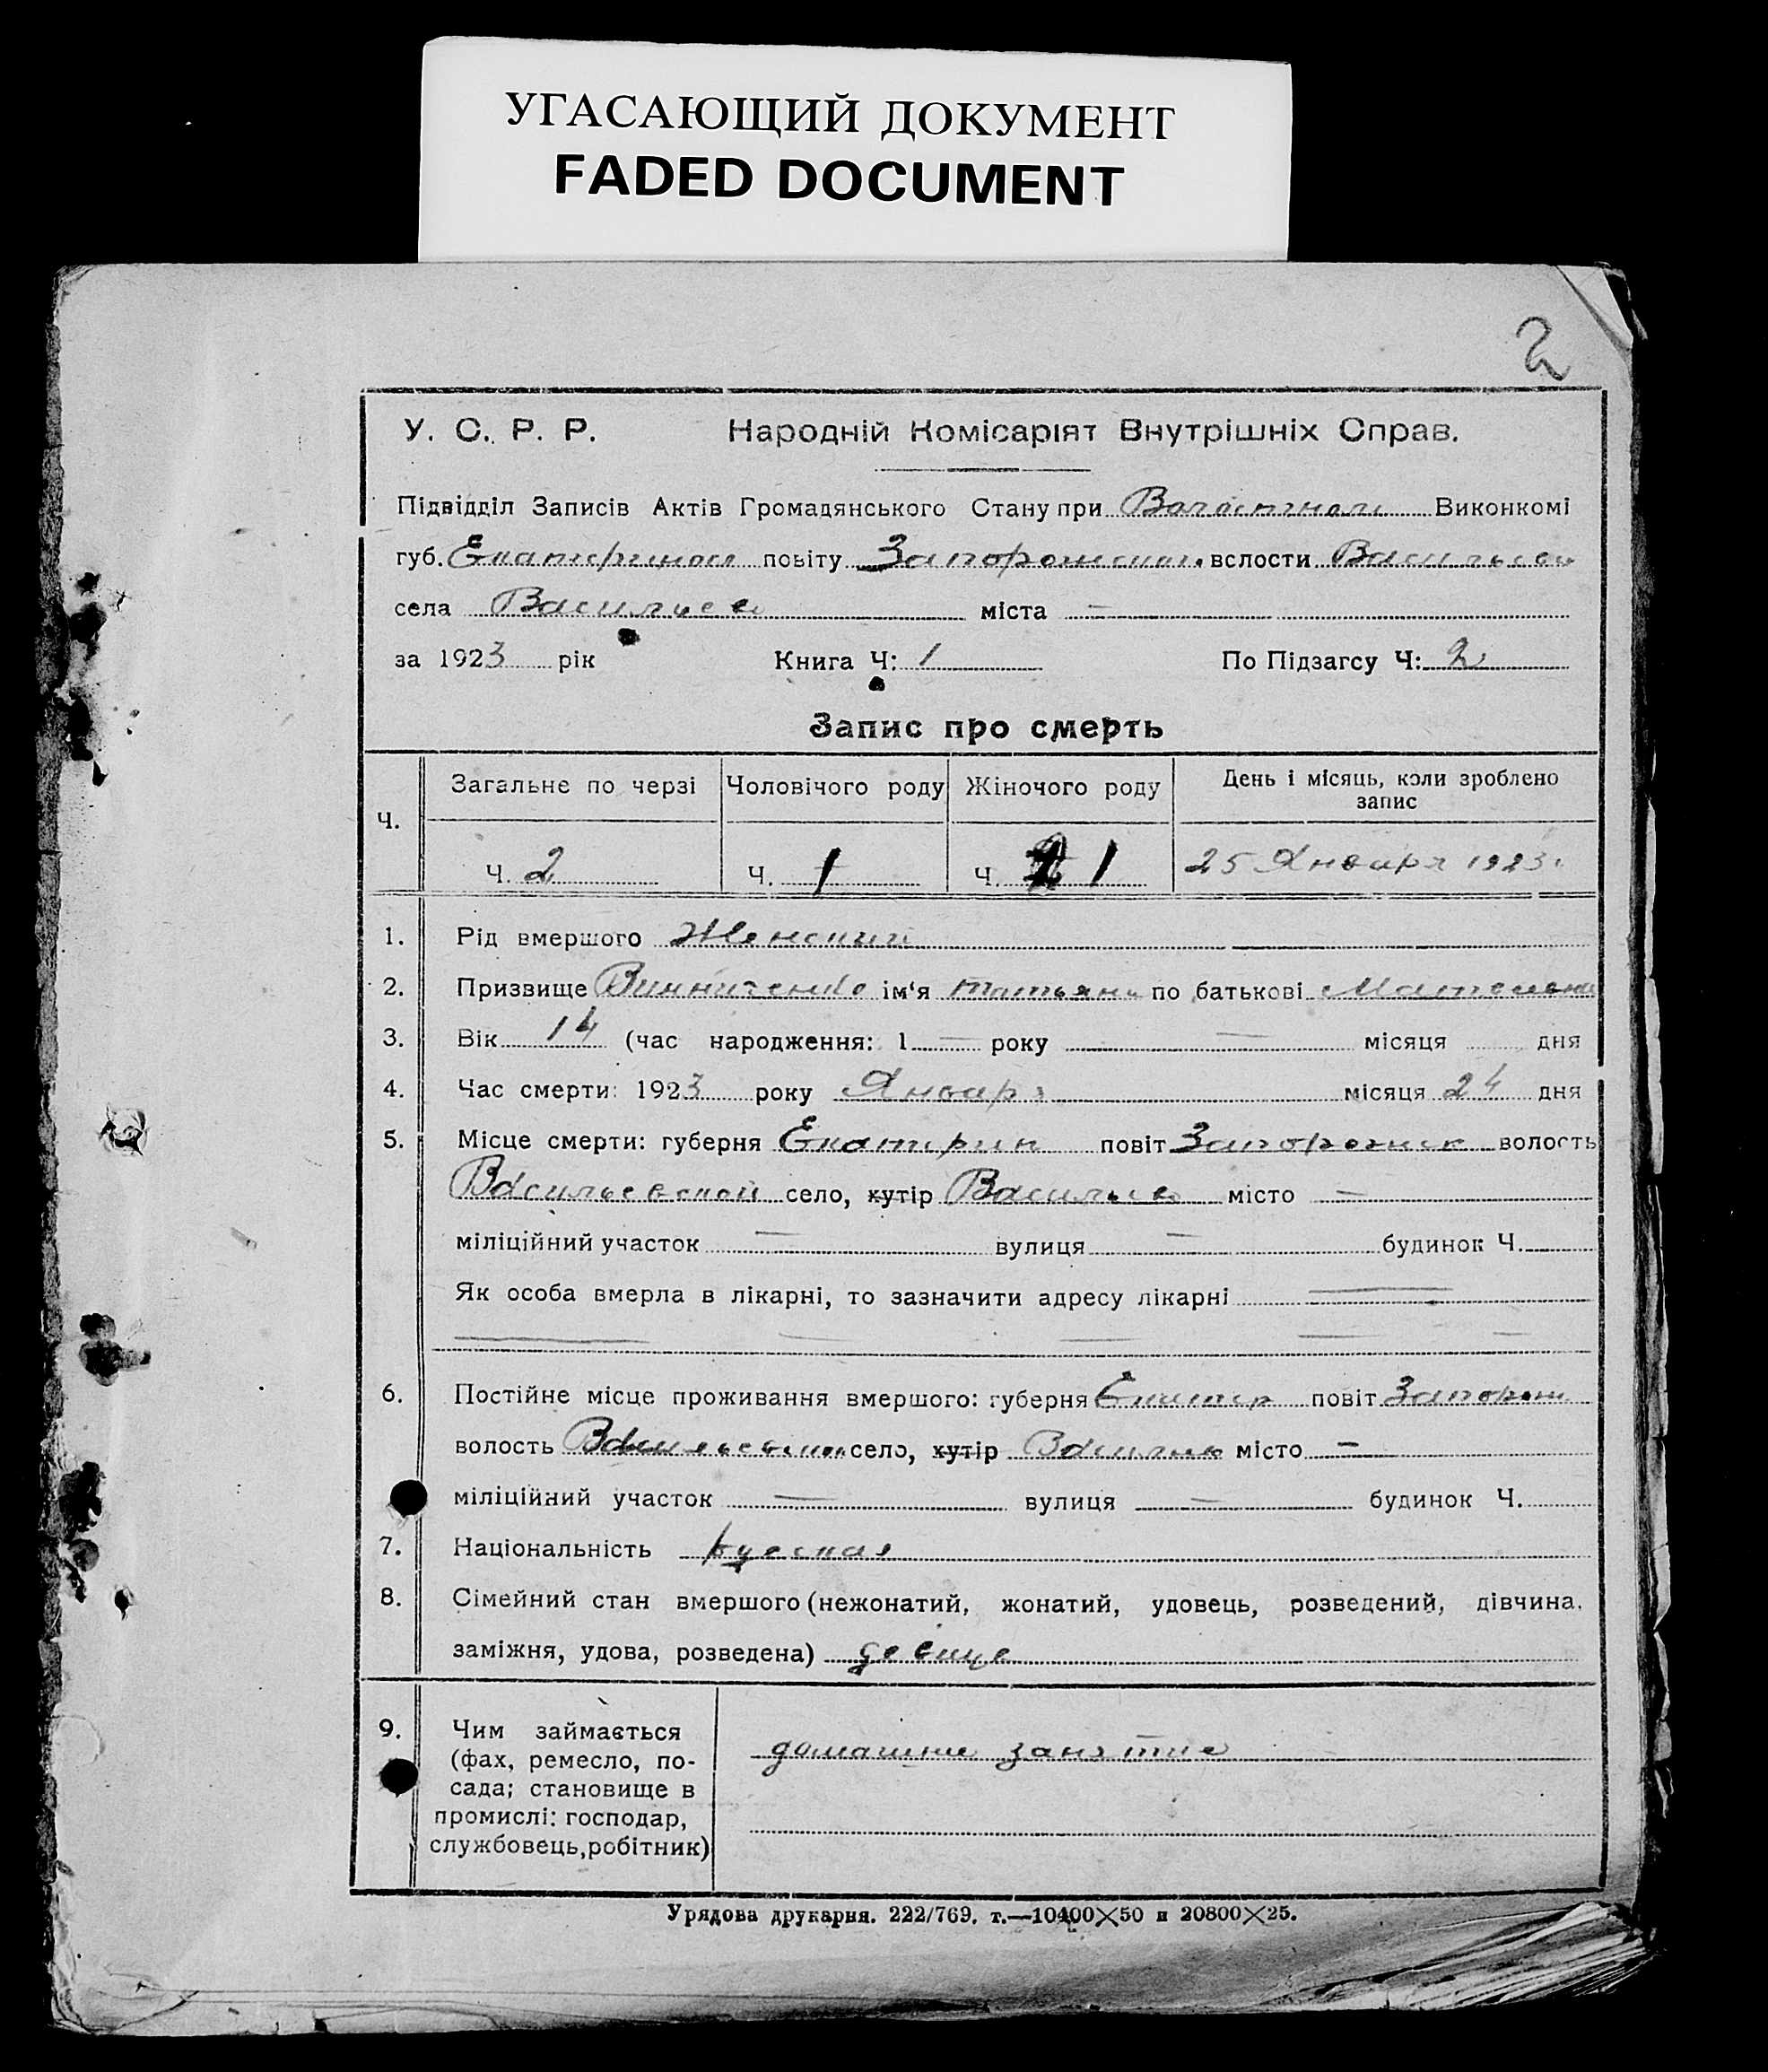 УГАСАЮЩИЙ ДОКУМЕНТ
FADED DOCUMENT
2
У. С. Р. Р. Народній Комісаріят Внутрішніх Справ.
Підвідділ Записів Актів Громадянського Стану при Виконкомі
губ. повіту вслости
села Васильев міста —
за 1923 рік Книга Ч: 1 По Підзагсу Ч: 2
Запис про смерть
Ч. Загальне по черзі Чоловічого роду Жіночого роду День і місяць, коли зроблено
запис
Ч. 2 Ч. 1 Ч. 1 25 Января 1923 г.
1. Рід вмершого Женский
2. Призвище Винниченко ім'я Татьяна по батькові
3. Вік 14 (час народження: 1 — року — місяця дня
4. Час смерти: 1923 року Января місяця 24 дня
5. Місце смерти: губерня Екатерин повіт Запорожск волость
Васильевской село, хутір Васильев місто —
міліційний участок — вулиця — будинок Ч.
Як особа вмерла в лікарні, то зазначити адресу лікарні —
6. Постійне місце проживання вмершого: губерня Екатер повіт Запорож
волость село, хутір місто —
міліційний участок — вулиця — будинок Ч.
7. Національність русская
8. Сімейний стан вмершого (нежонатий, жонатий, удовець, розведений, дівчина,
заміжня, удова, розведена) девица
9. Чим займається
(фах, ремесло, по-
сада; становище в
промислі: господар,
службовець, робітник)
домашние занятие
Урядова друкарня. 222/769. т.—10400×50 и 20800×25.